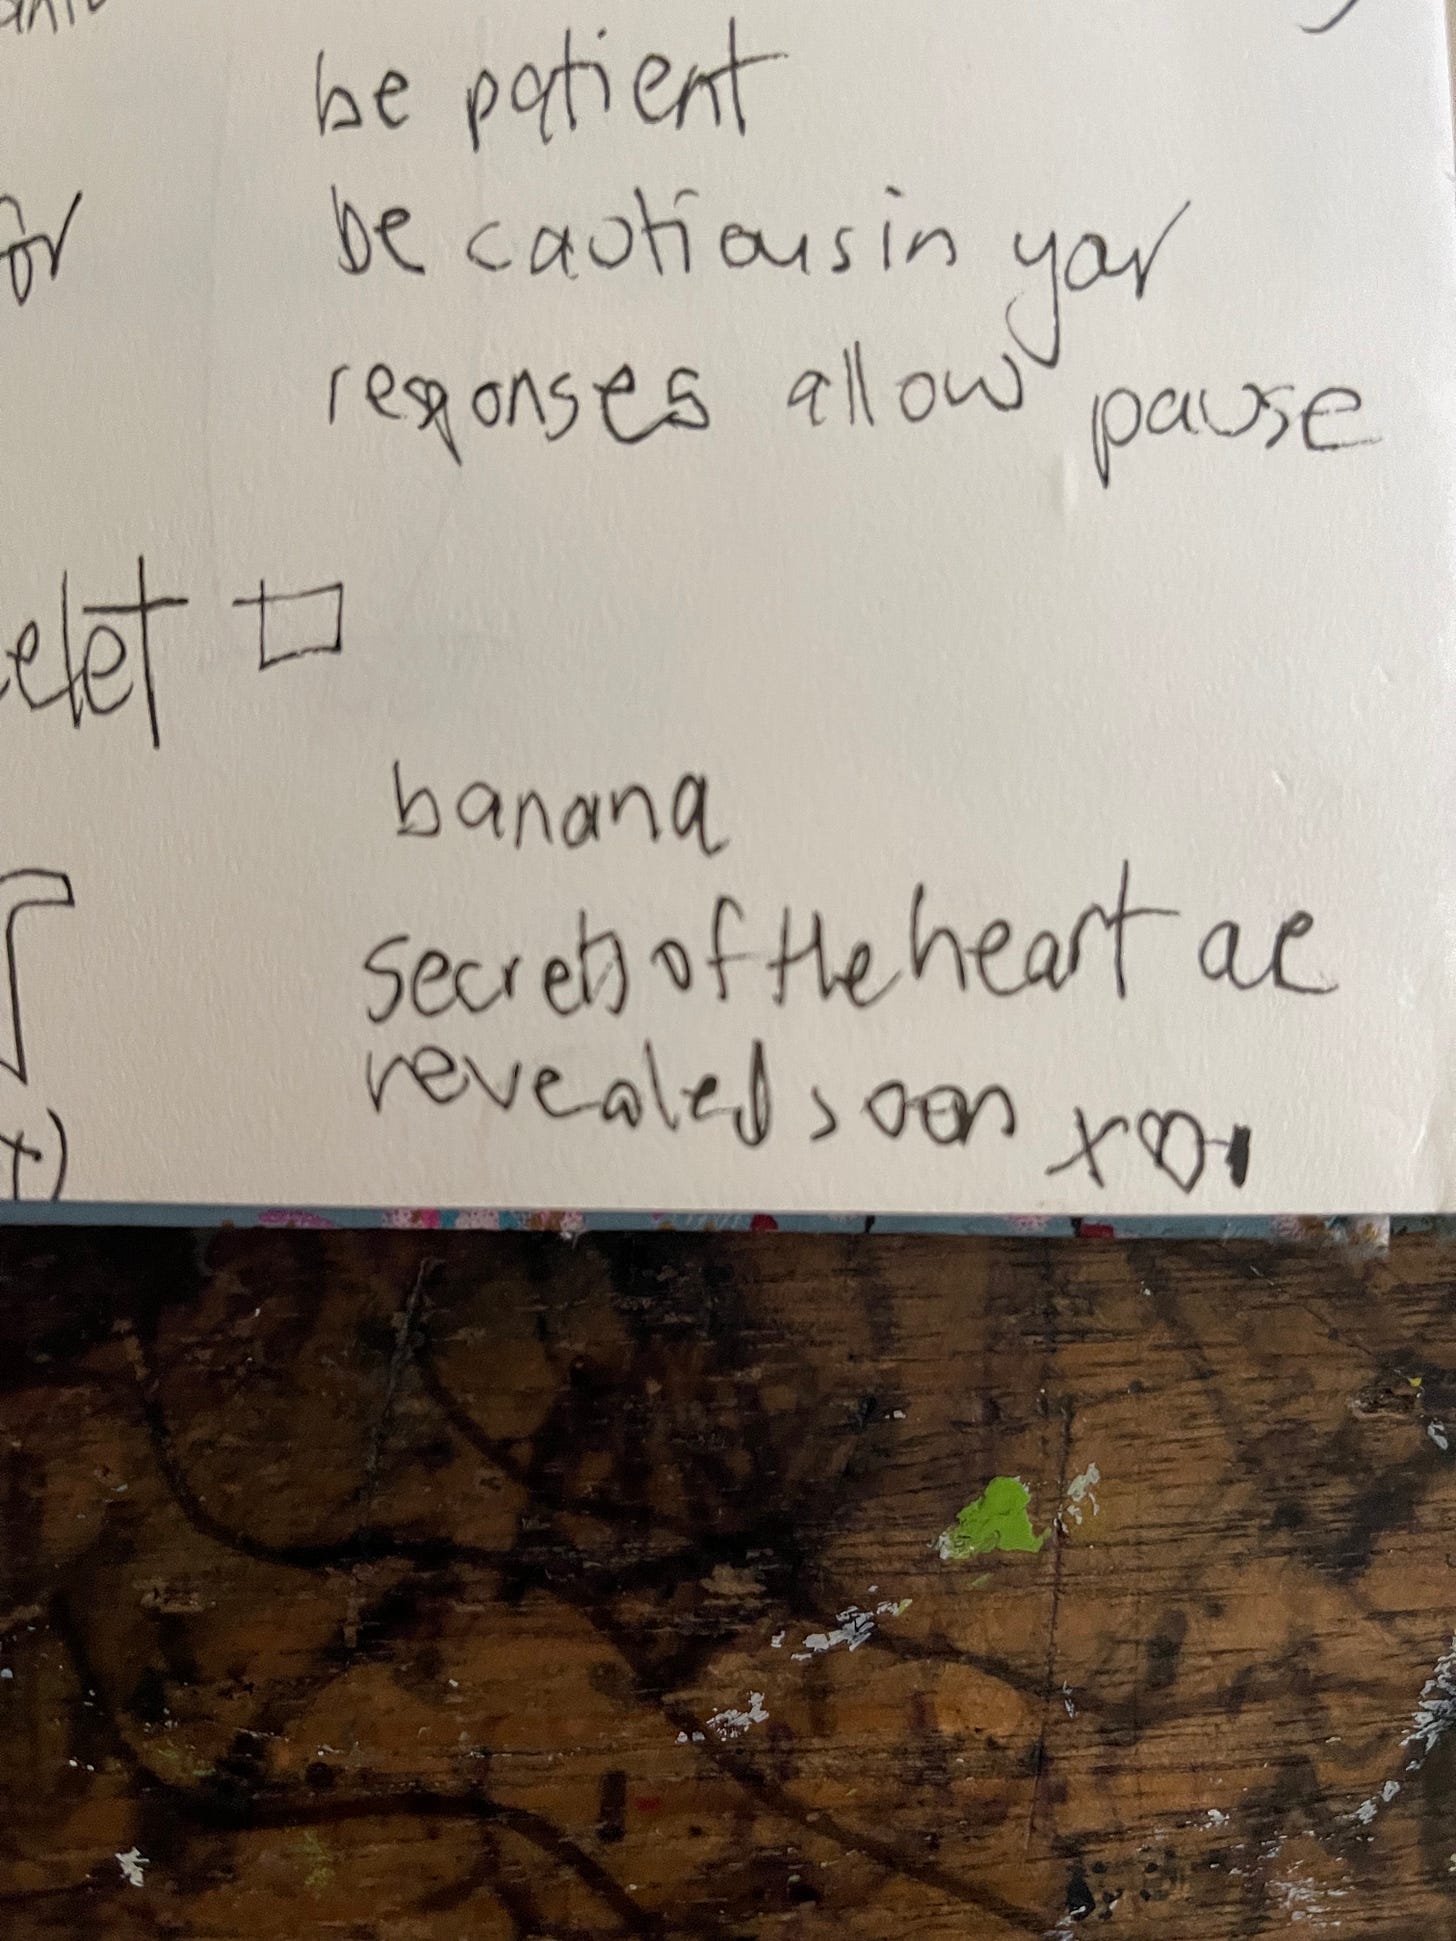 be patient
for be cautious in your
responses allow pause
elet
banana
secrets of the heart are
revealed soon x♡